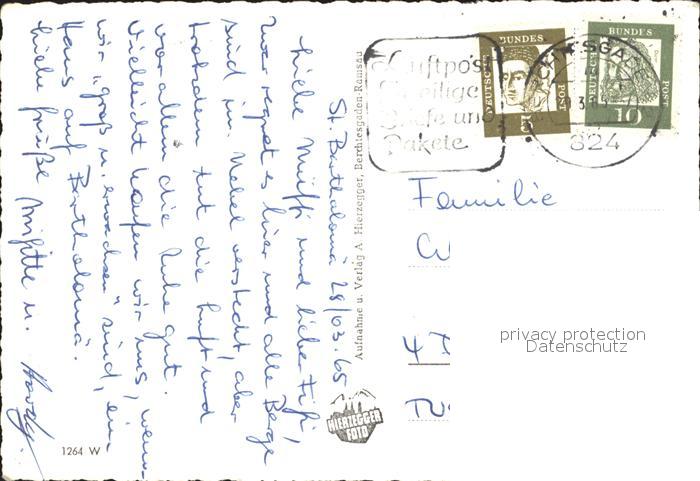 St. Bartholomä 28/03.65
Liebe Muffi und lieber Fifi,
zwar regnet es hier und alle Berge
sind im Nebel versteckt, aber
trotzdem tut die Luft und
vor allem die Ruhe gut.
Vielleicht kaufen wir uns, wenn
wir "groß u. erwachsen" sind, ein
Haus auf Bartholomä.
Liebe Grüße Brigitte u.
1264 W
Aufnahme u. Verlag A. Hierzegger, Berchtesgaden-Ramsau
HIERZEGGER
FOTO
Luftpost
Eilige
Briefe und
Pakete
DEUTSCHE BUNDESPOST
5
DEUTSCHE BUNDESPOST
10
824
Familie
W
privacy protection
Datenschutz